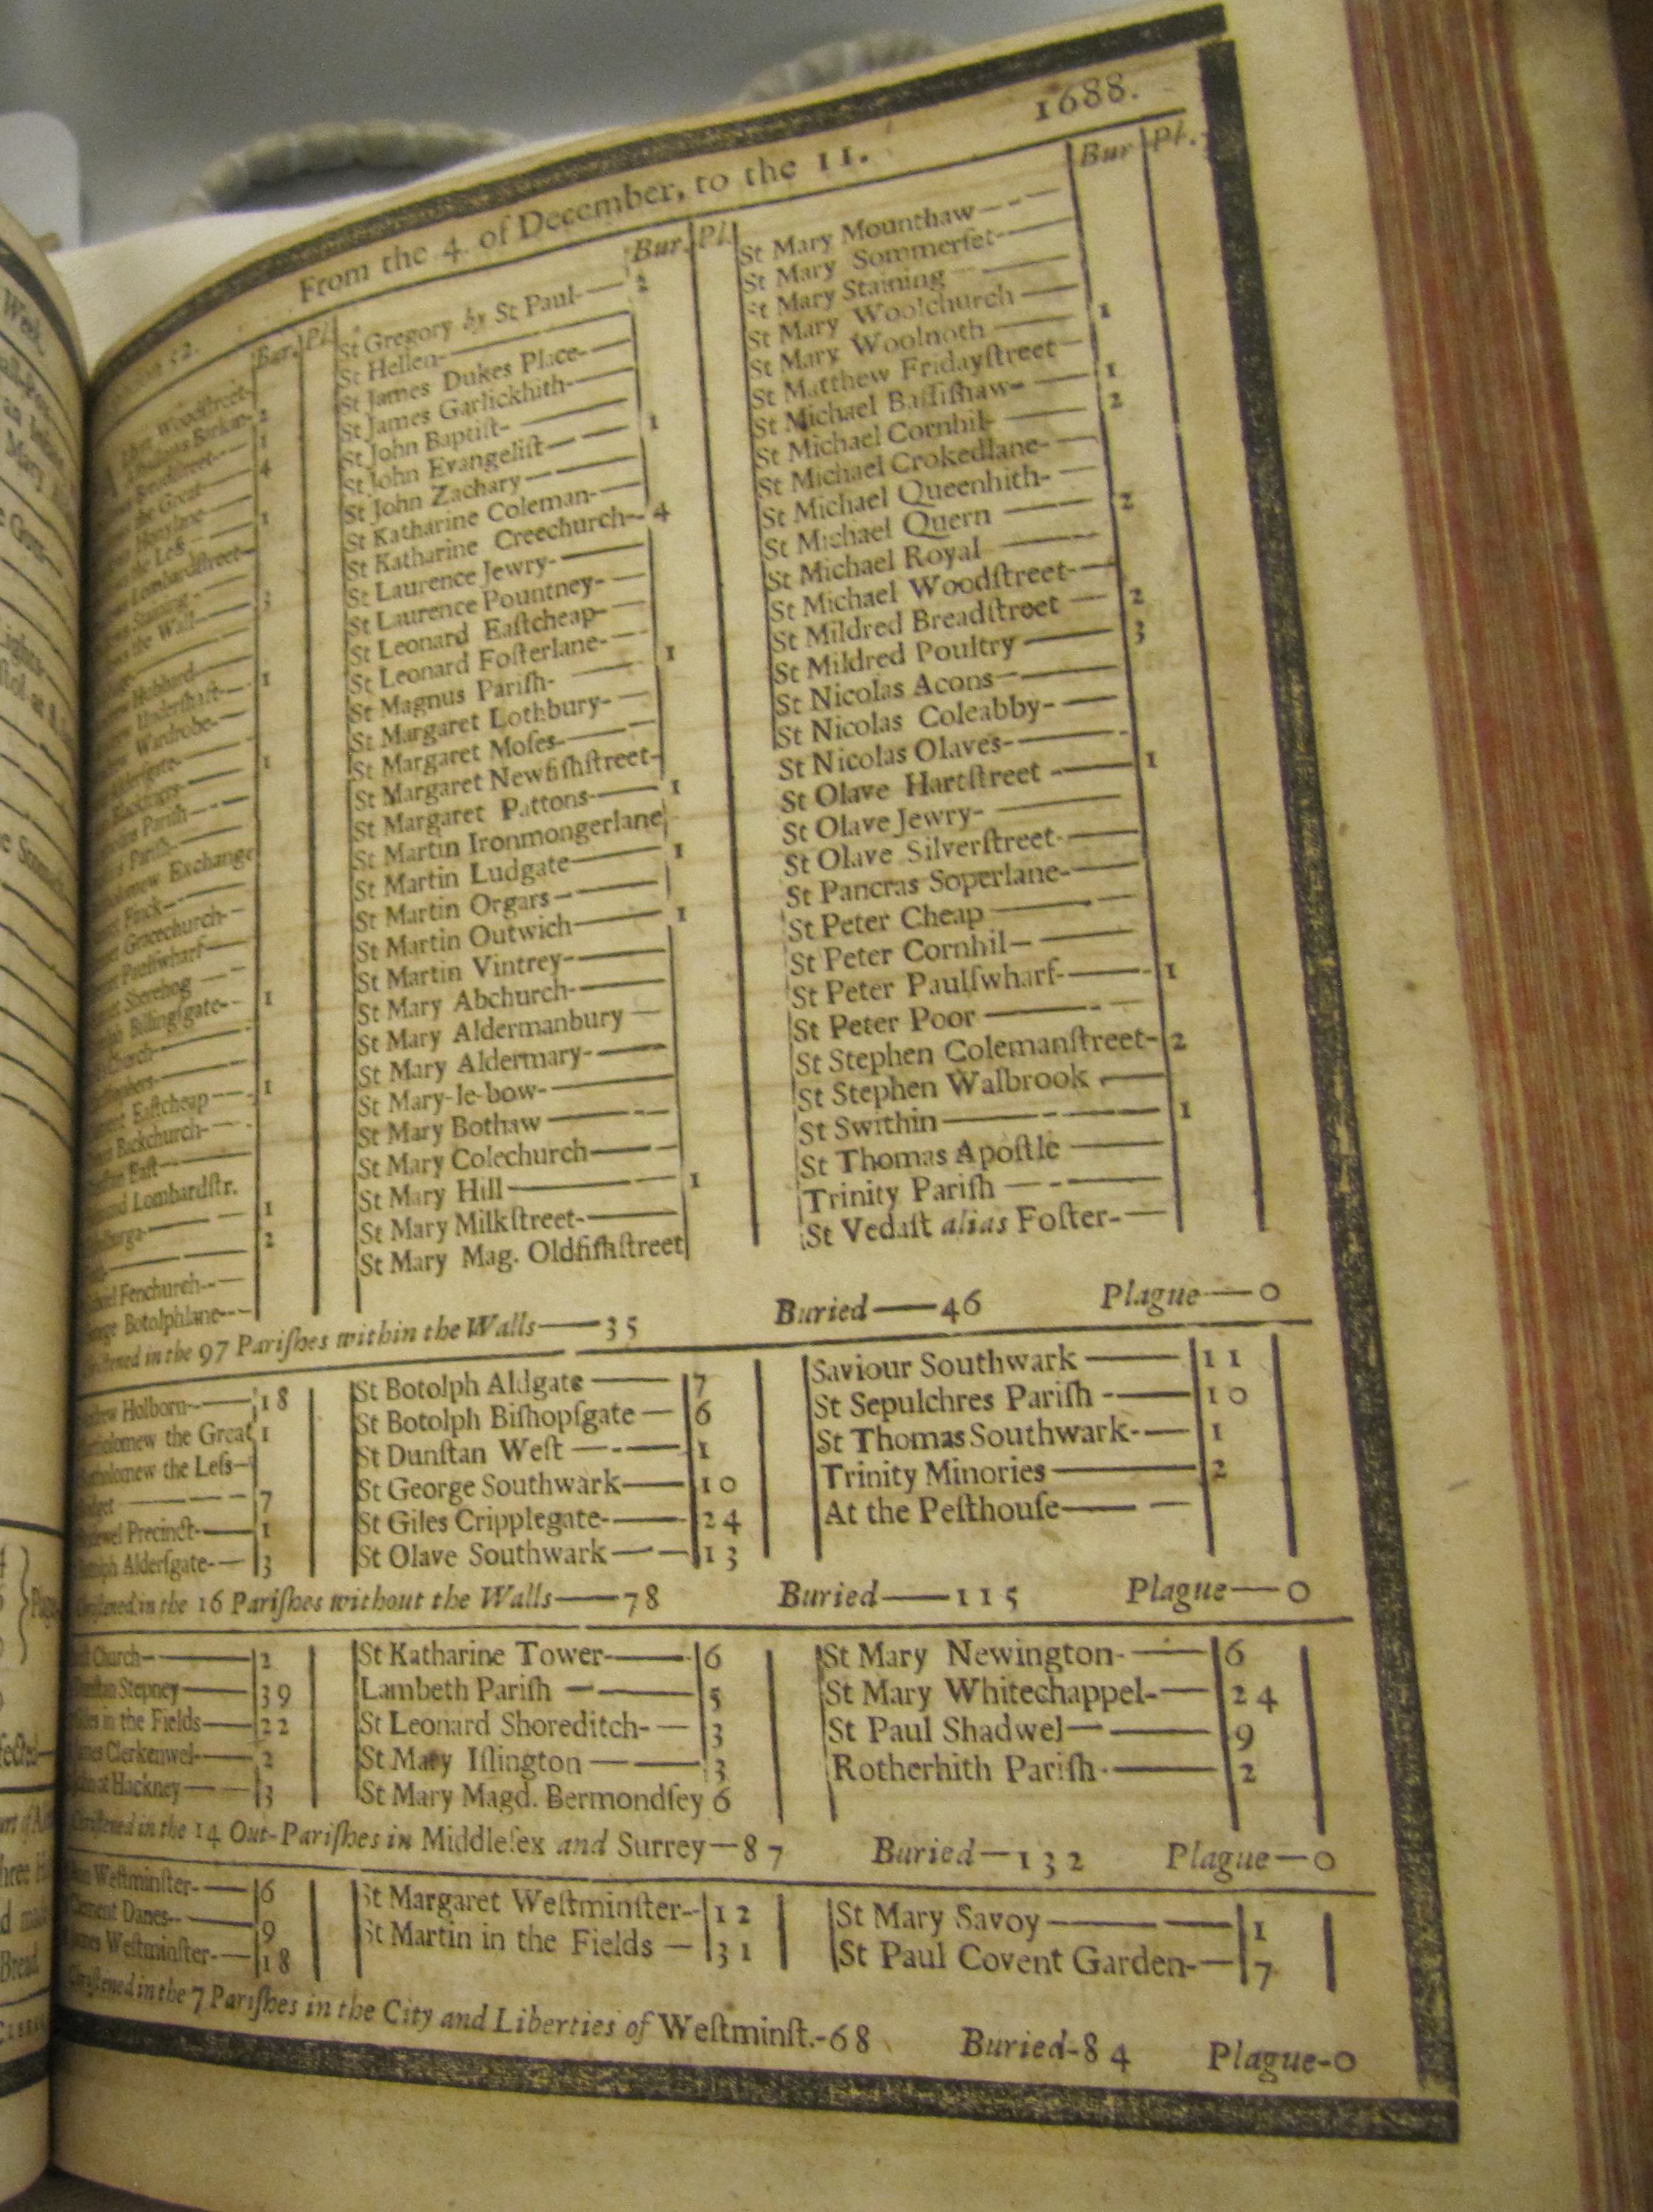 From the 4 of December, to the 11. 1688.
Bur. Pl.
Woodstreet-
Barkin- 2
Breadstreet- 1
the Great- 4
Honylane
the Less 1
Lombardstreet-
Staining-
the Wall- 3
Hubbard
Undershaft- 1
Wardrobe-
Aldersgate-
Blackfriers 1
Parish
Parish
Exchange
Finck
Gracechurch-
Paulswharf
Sherehog
Billingsgate- 1
Church
Eastcheap 1
Backchurch-
East
Lombardstr.
1
2
Fenchurch
Botolphlane
Bur. Pl.
St Gregory by St Paul- 2
St Hellen-
St James Dukes Place-
St James Garlickhith-
St John Baptist-
St John Evangelist 1
St John Zachary
St Katharine Coleman-
St Katharine Creechurch- 4
St Laurence Jewry-
St Laurence Pountney-
St Leonard Eastcheap-
St Leonard Fosterlane-
St Magnus Parish- 1
St Margaret Lothbury-
St Margaret Moses-
St Margaret Newfishstreet-
St Margaret Pattons 1
St Martin Ironmongerlane
St Martin Ludgate 1
St Martin Orgars
St Martin Outwich 1
St Martin Vintrey-
St Mary Abchurch-
St Mary Aldermanbury
St Mary Aldermary-
St Mary-le-bow-
St Mary Bothaw
St Mary Colechurch
St Mary Hill 1
St Mary Milkstreet-
St Mary Mag. Oldfishstreet
Bur Pl.
St Mary Mounthaw
St Mary Sommerset-
St Mary Staining
St Mary Woolchurch
St Mary Woolnoth 1
St Matthew Fridaystreet
St Michael Bassishaw- 1
St Michael Cornhil- 2
St Michael Crokedlane-
St Michael Queenhith-
St Michael Quern 2
St Michael Royal
St Michael Woodstreet-
St Mildred Breadstreet 2
St Mildred Poultry 3
St Nicolas Acons
St Nicolas Coleabby-
St Nicolas Olaves-
St Olave Hartstreet 1
St Olave Jewry-
St Olave Silverstreet-
St Pancras Soperlane-
St Peter Cheap
St Peter Cornhil
St Peter Paulswharf- 1
St Peter Poor
St Stephen Colemanstreet- 2
St Stephen Walbrook
St Swithin 1
St Thomas Apostle
Trinity Parish
St Vedast alias Foster-
in the 97 Parishes within the Walls—35 Buried—46 Plague—0
Holborn 18
the Great 1
the Less
7
Precinct- 1
Aldersgate- 3
St Botolph Aldgate 7
St Botolph Bishopsgate 6
St Dunstan West 1
St George Southwark 10
St Giles Cripplegate- 24
St Olave Southwark 13
Saviour Southwark 11
St Sepulchres Parish 10
St Thomas Southwark- 1
Trinity Minories 2
At the Pesthouse
in the 16 Parishes without the Walls—78 Buried—115 Plague—0
Church 2
Stepney 39
in the Fields 22
Clerkenwel- 2
at Hackney 3
St Katharine Tower- 6
Lambeth Parish 5
St Leonard Shoreditch- 3
St Mary Islington 3
St Mary Magd. Bermondsey 6
St Mary Newington- 6
St Mary Whitechappel- 24
St Paul Shadwel 9
Rotherhith Parish- 2
in the 14 Out-Parishes in Middlesex and Surrey—87 Buried—132 Plague—0
Westminster- 6
Clement Danes- 9
Westminster- 18
St Margaret Westminster- 12
St Martin in the Fields 31
St Mary Savoy 1
St Paul Covent Garden- 7
in the 7 Parishes in the City and Liberties of Westminst.-68 Buried-84 Plague-0